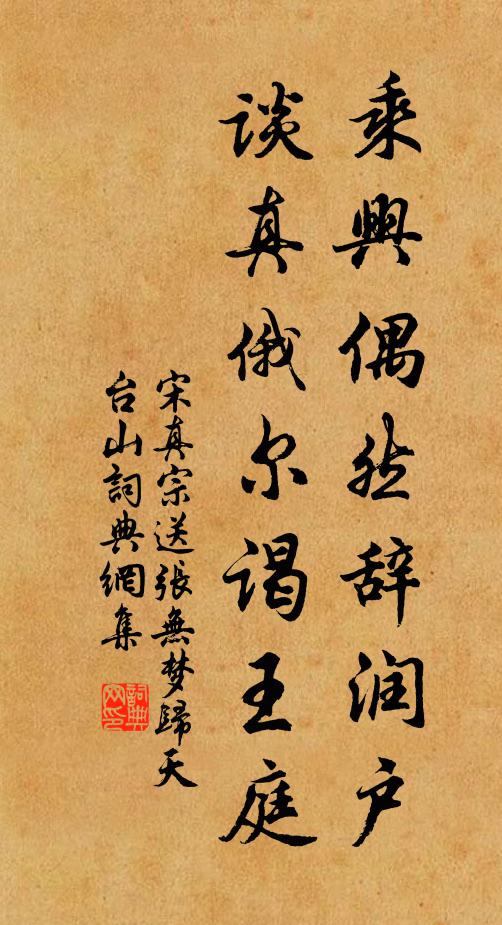 乘興偶然辞润户
谈真俄尔谒王庭
宋真宗送張無梦歸天
台山詞典網集
詞典网印